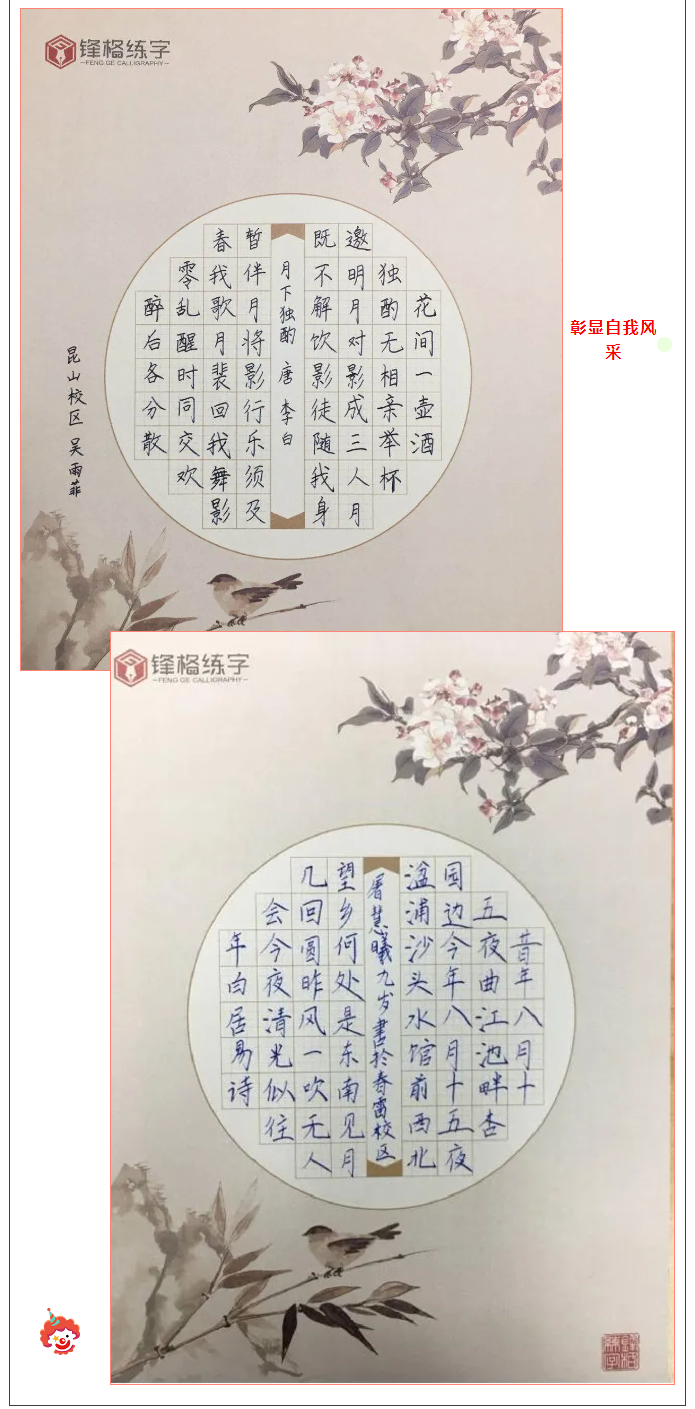 锋格练字
FENG GE CALLIGRAPHY
花间一壶酒
独酌无相亲举杯
邀明月对影成三人月
既不解饮影徒随我身
月下独酌 唐 李白
暂伴月将影行乐须及
春我歌月裴回我舞影
零乱醒时同交欢
醉后各分散
昆山校区 吴雨菲
彰显自我风
采
锋格练字
FENG GE CALLIGRAPHY
昔年八月十
五夜曲江池畔杏
园边今年八月十五夜
湓浦沙头水馆前西北
屠慧曦九岁书於春雷校区
望乡何处是东南见月
几回圆昨风一吹无人
会今夜清光似往
年白居易诗